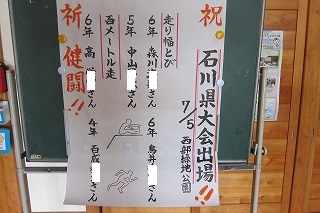 祝
石川県大会出場!!
7/5 西部緑地公園
走り幅とび
6年 森川 さん
5年 中山 さん
6年 鳥井 さん
百メートル走
6年 高 さん
4年 百成 さん
祈健闘!!